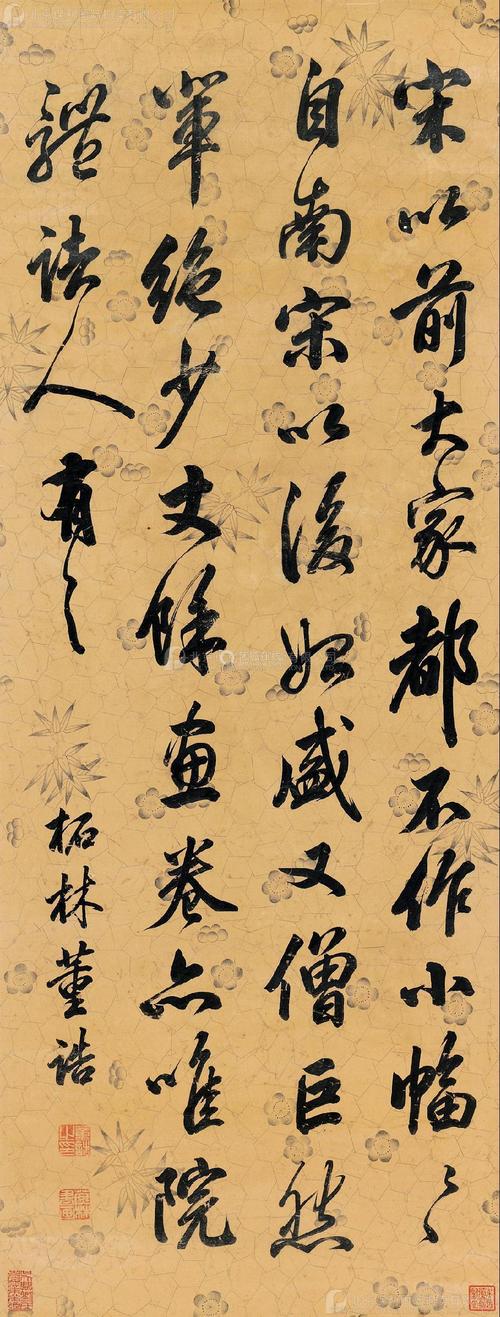 宋以前大家都不作小幅〻
自南宋以後始盛又僧巨然
輩絕少丈餘畫卷亦唯院
體諸人有之
柘林董誥